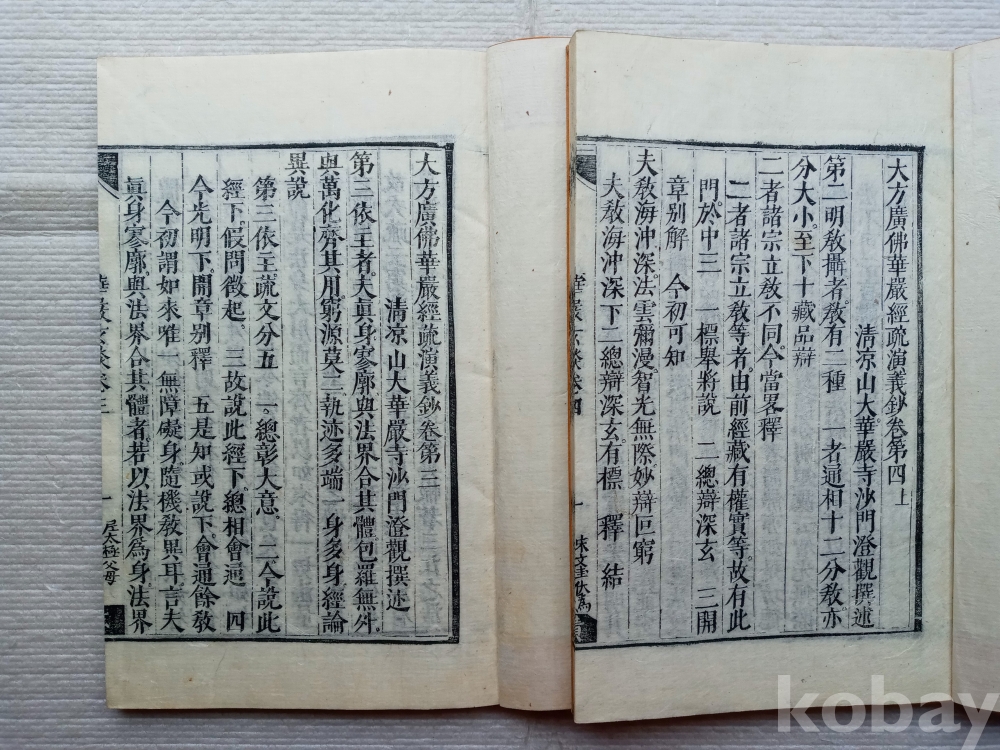 大方廣佛華嚴經疏演義鈔卷第四上
清凉山大華嚴寺沙門澄觀撰述
第二明敎攝者。敎有二種 一者通相十二分敎。亦
分大小。至下十藏品辯
二者諸宗立敎不同。今當畧釋
二者諸宗立敎等者。由前經藏有權實等。故有此
門。於中三 一標舉將說 二總辯深玄 三開
章別解 今初可知
夫敎海沖深。法雲彌漫。智光無際。妙辯叵窮
夫敎海沖深下二總辯深玄。有標 釋 結
華嚴玄談卷四
一
大方廣佛華嚴經疏演義鈔卷第三
清凉山大華嚴寺沙門澄觀撰述
第三依主者。夫眞身寥廓。與法界合其體。包羅無外。
與萬化齊其用。窮源莫二。執迹多端。一身多身。經論
異說
第三依主。疏文分五 一。總彰大意。 二今說此
經下。假問徵起。 三故說此經下。總相會通 四
今光明下。開章别釋 五是知或說下。會通餘敎
今初謂如來唯一無障礙身。隨機敎異耳。言夫
眞身寥廓與法界合其體者。若以法界爲身。法界
華嚴玄談卷三
一
kobay